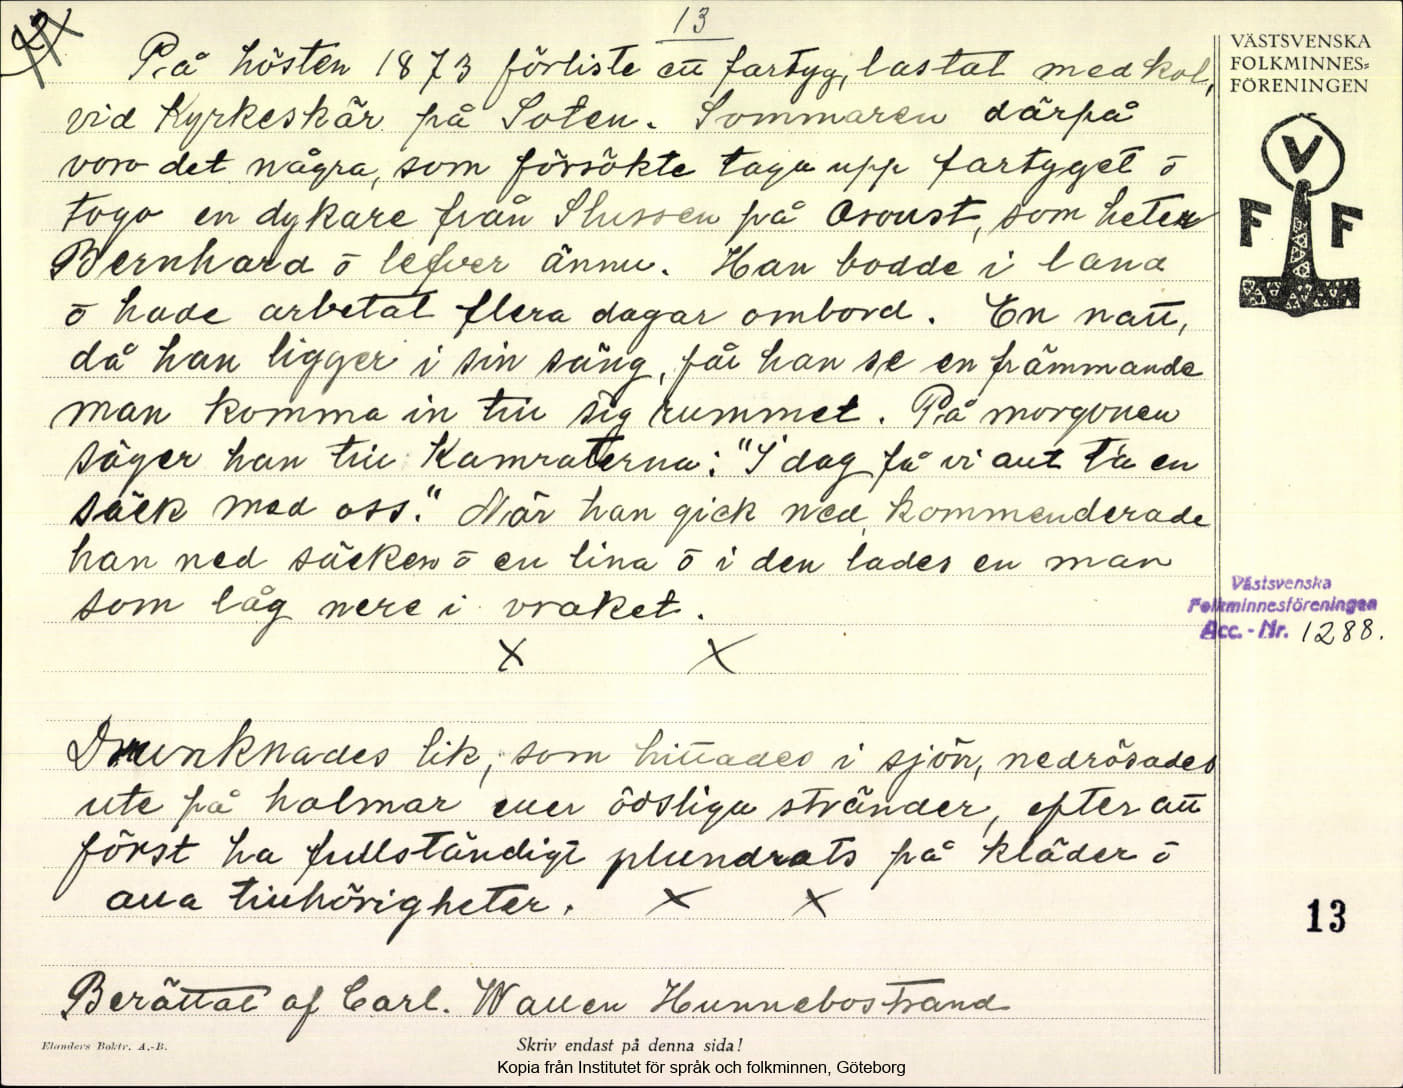 13
På hösten 1873 förliste ett fartyg, lastat med kol,
vid Kyrkeskär på Soten. Sommaren därpå
voro det några, som försökte taga upp fartyget ō
togo en dykare från Slussen på Oroust, som heter
Bernhard ō lefver ännu. Han bodde i land
ō hade arbetat flera dagar ombord. En natt,
då han ligger i sin säng, får han se en främmande
man komma in till sig rummet. På morgonen
säger han till Kamraterna: "I dag få vi allt ta en
säck med oss." När han gick ned kommenderade
han ned säcken ō en lina ō i den lades en man
som låg nere i vraket.
x x
Drunknades lik, som hittades i sjön, nedrösades
ute på holmar eller ödsliga stränder, efter att
först ha fullständigt plundrats på kläder ō
alla tillhörigheter. x x
Berättat af Carl. Wallen Hunnebostrand
Elanders Boktr. A.-B.
Skriv endast på denna sida!
Kopia från Institutet för språk och folkminnen, Göteborg
VÄSTSVENSKA
FOLKMINNES=
FÖRENINGEN
V
F F
Västsvenska
Folkminnesföreningen
Acc. - Nr. 1288.
13